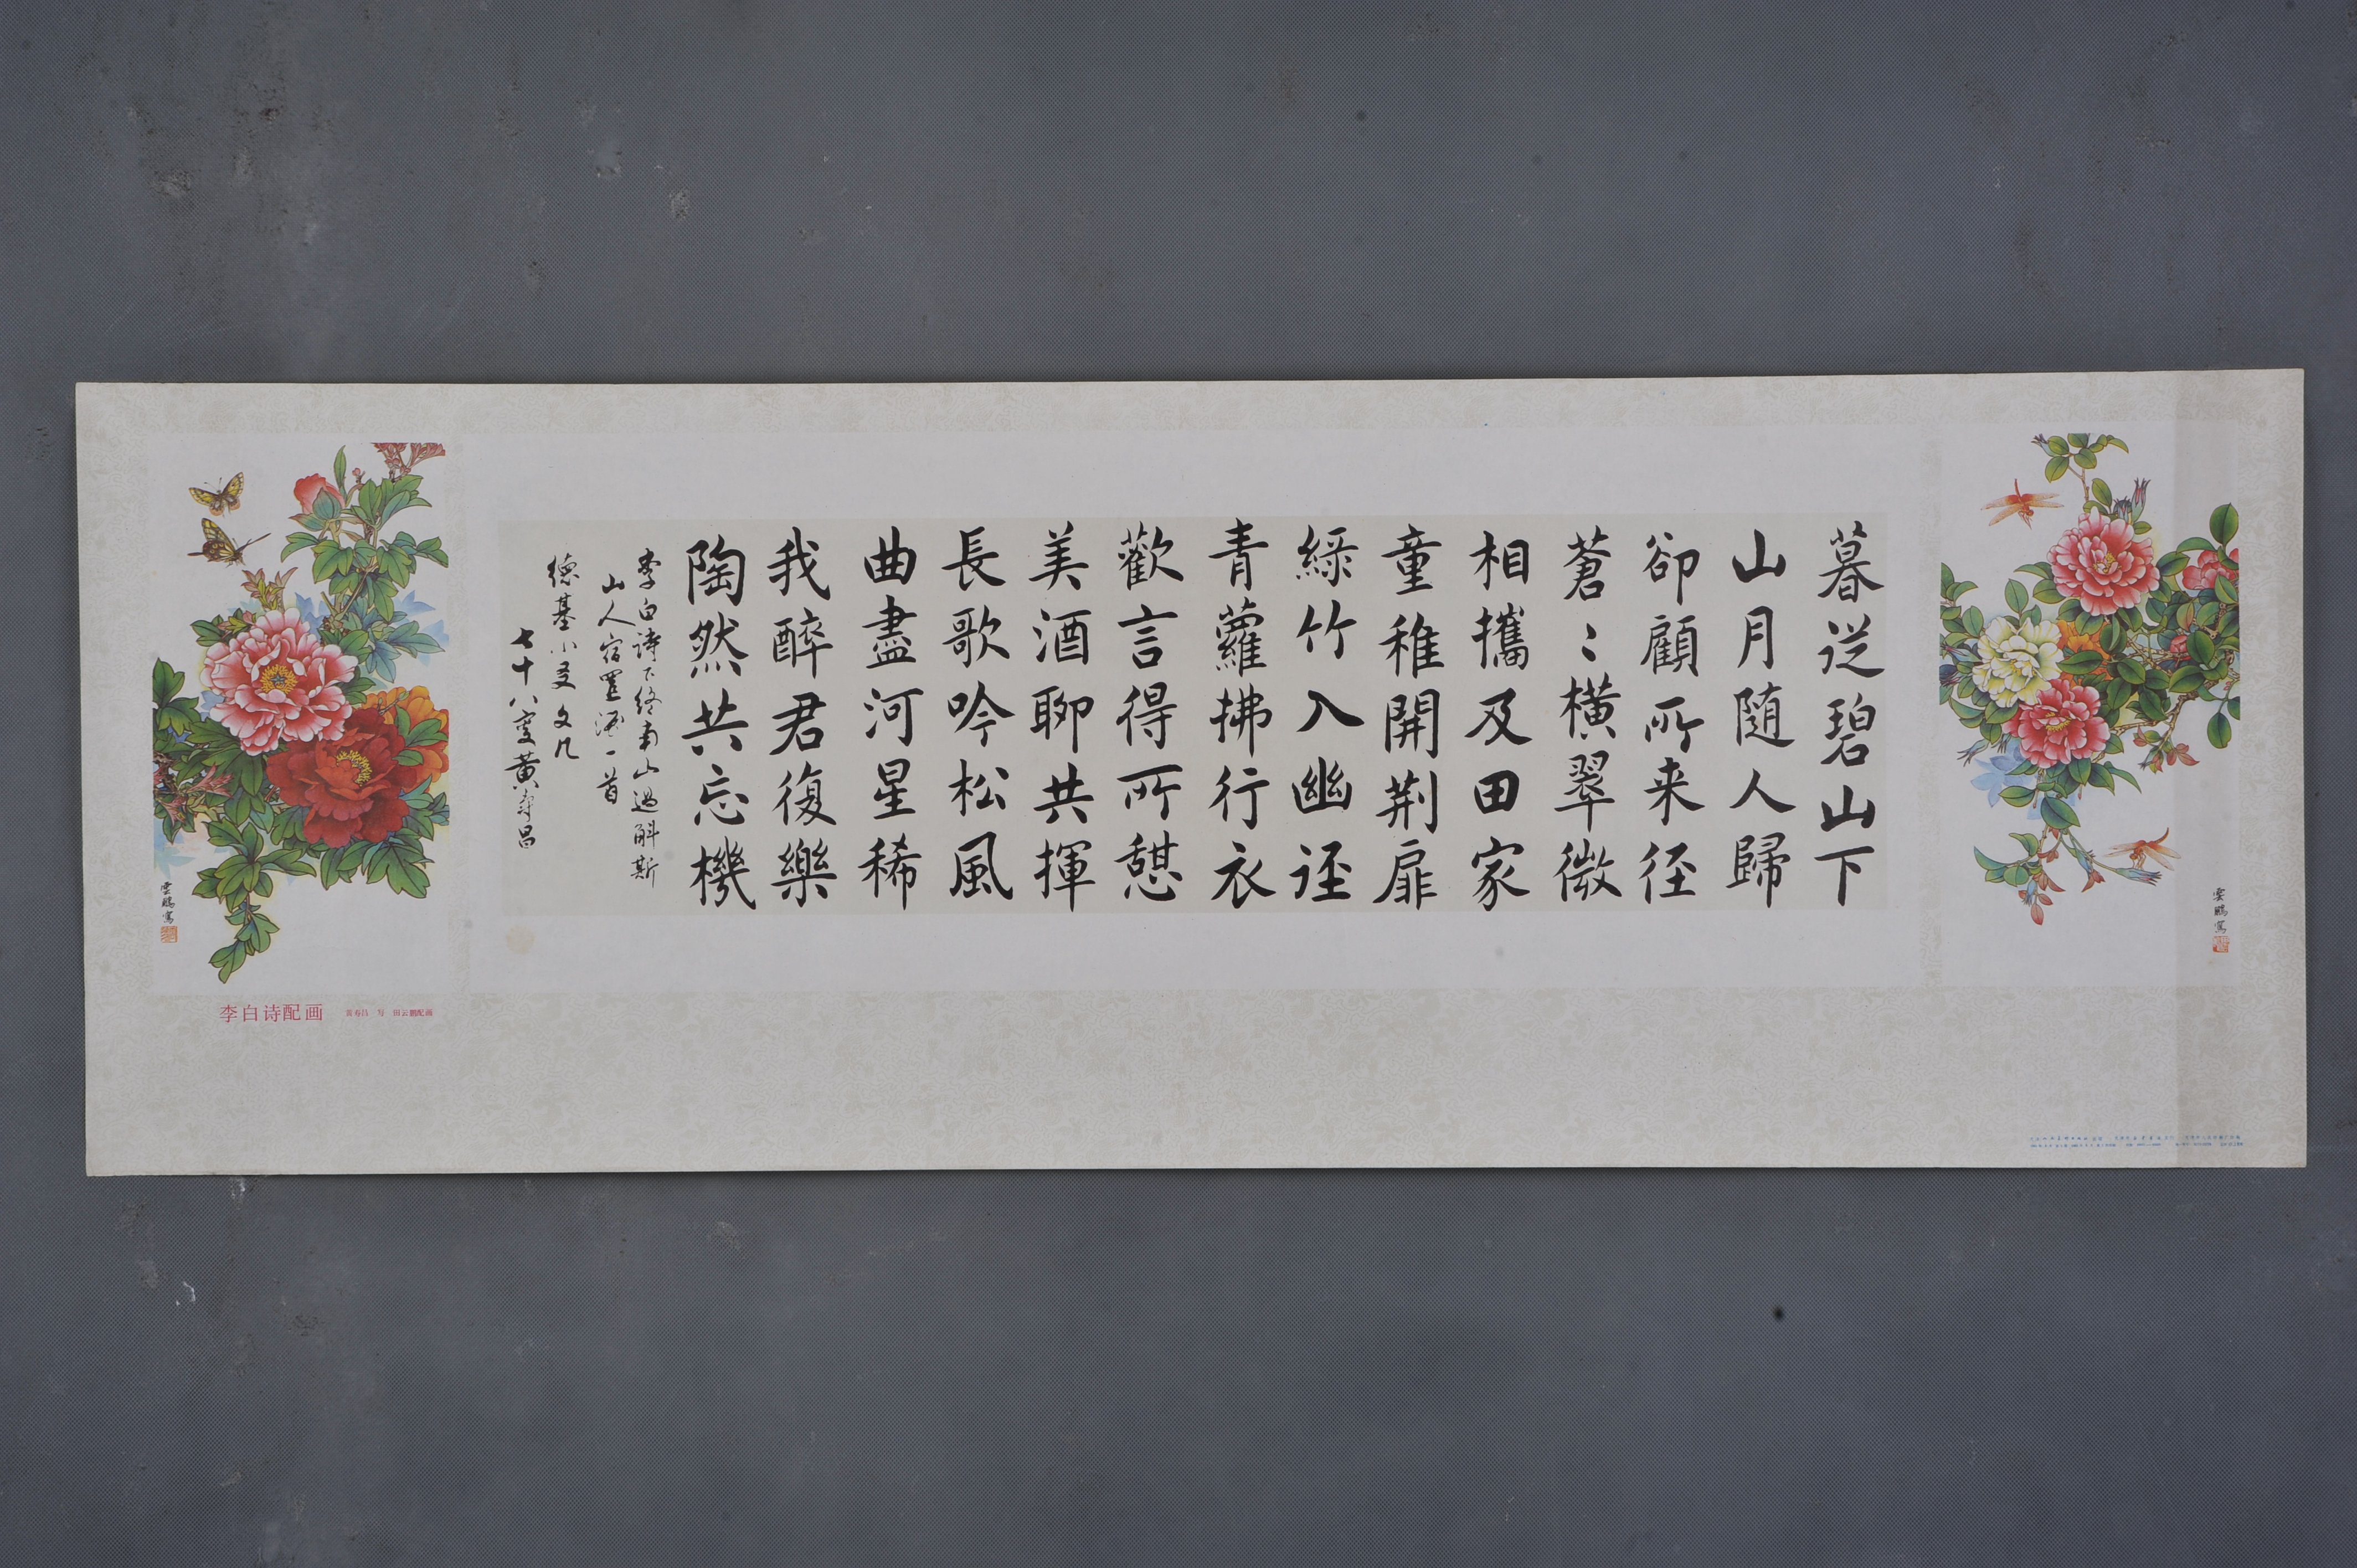 暮從碧山下
山月随人歸
卻顧所来径
蒼〻横翠微
相攜及田家
童稚開荆扉
綠竹入幽迳
青蘿拂行衣
歡言得所憩
美酒聊共揮
長歌吟松風
曲盡河星稀
我醉君復樂
陶然共忘機
李白诗下终南山過斛斯
山人宿置酒一首
德基小友文几
七十八叟黄壽昌
雲鵬寫
雲鵬寫
李白诗配画 黄寿昌 写 田云鹏配画